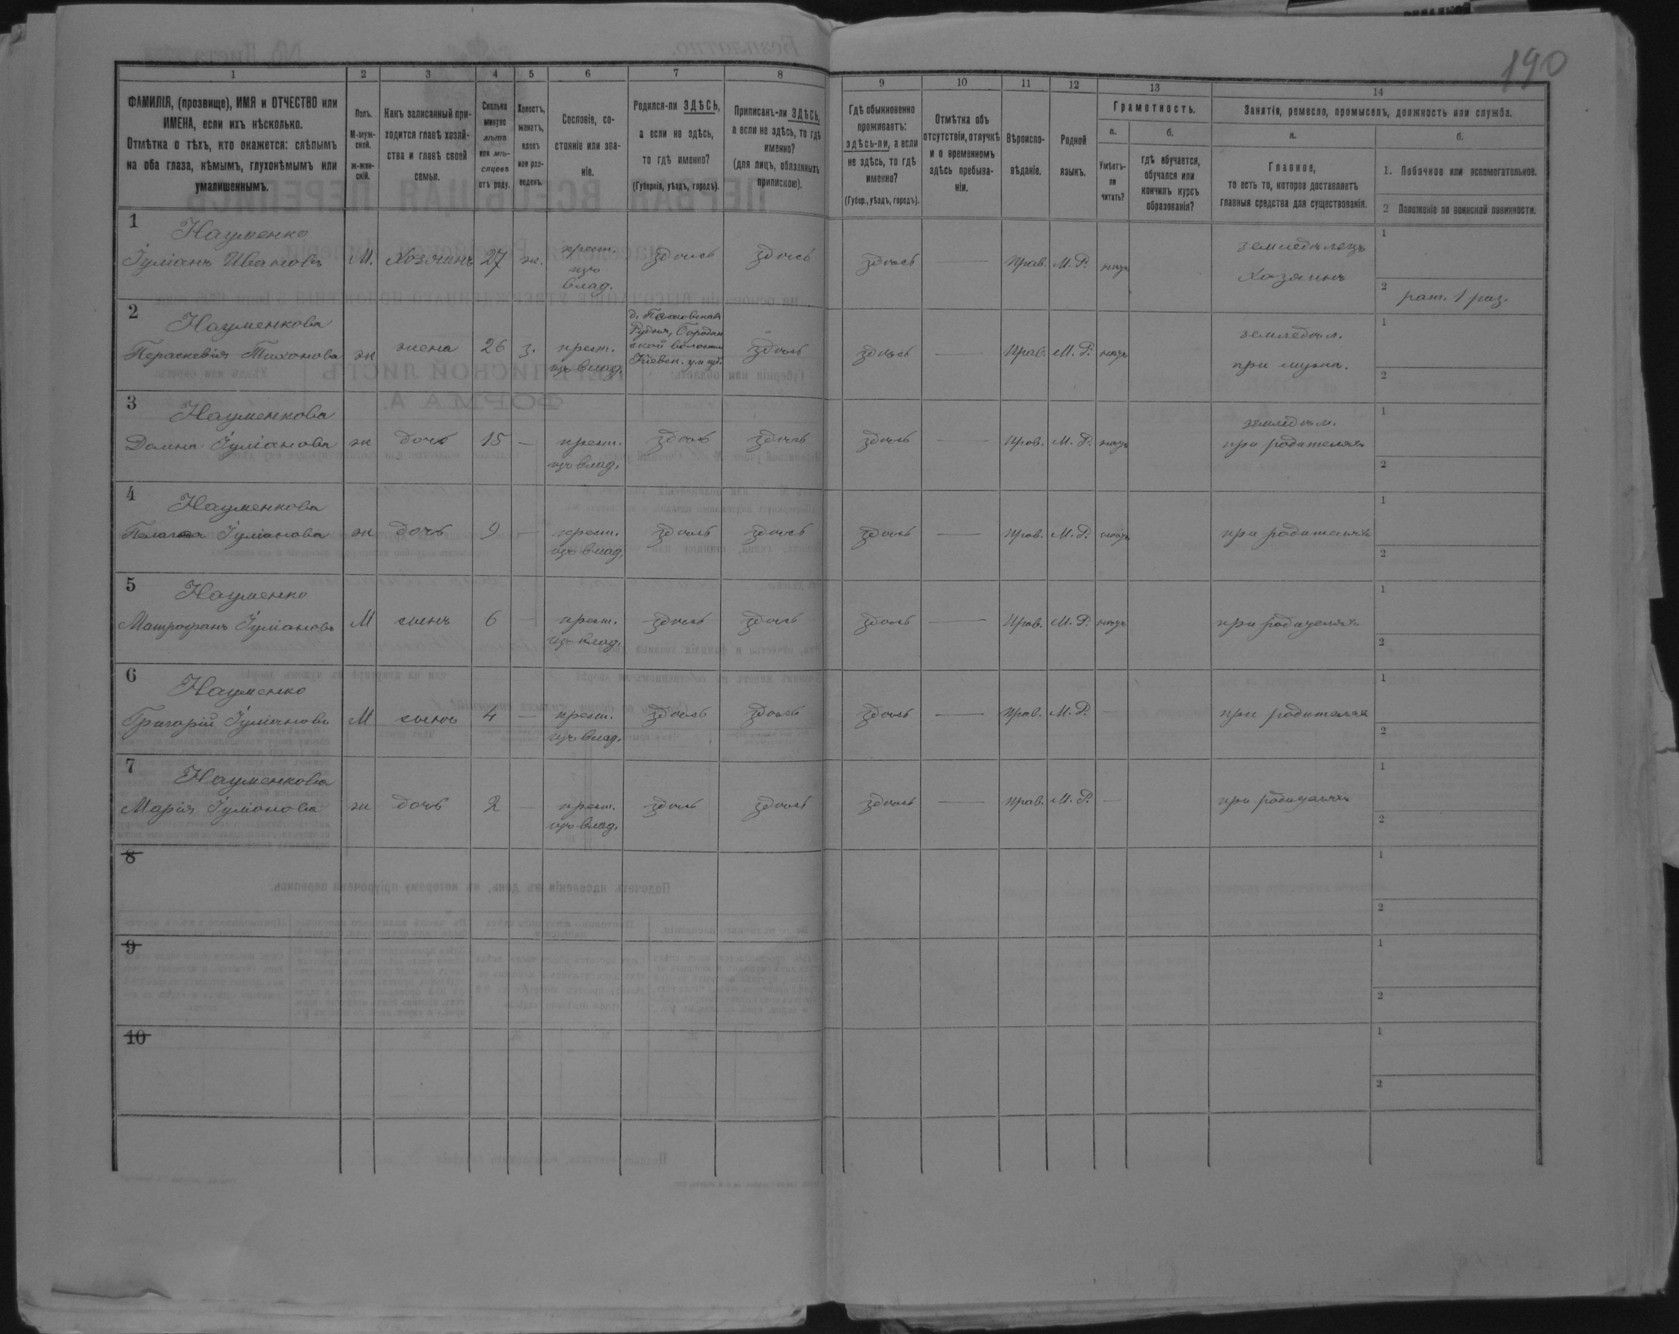 190
1 2 3 4 5 6 7 8 9 10 11 12 13 14
ФАМИЛІЯ, (прозвище), ИМЯ и ОТЧЕСТВО или
ИМЕНА, если ихъ нѣсколько.
Отмѣтка о тѣхъ, кто окажется: слѣпымъ
на оба глаза, нѣмымъ, глухонѣмымъ или
умалишеннымъ.
Полъ.
М-муж-
ской.
ж-жен-
скій.
Какъ записанный при-
ходится главѣ хозяй-
ства и главѣ своей
семьи.
Сколько
минуло
лѣтъ
или мѣ-
сяцевъ
отъ роду.
Холостъ,
женатъ,
вдовъ
или раз-
веденъ.
Сословіе, со-
стояніе или зва-
ніе.
Родился-ли ЗДѢСЬ,
а если не здѣсь,
то гдѣ именно?
(Губернія, уѣздъ, городъ).
Приписанъ-ли ЗДѢСЬ,
а если не здѣсь, то гдѣ
именно?
(для лицъ, обязанныхъ
припискою).
Гдѣ обыкновенно
проживаетъ:
здѣсь-ли, а если
не здѣсь, то гдѣ
именно?
(Губер., уѣздъ, городъ).
Отмѣтка объ
отсутствіи, отлучкѣ
и о временномъ
здѣсь пребыва-
ніи.
Вѣроиспо-
вѣданіе.
Родной
языкъ.
Грамотность.
а.
Умѣетъ-
ли
читать?
б.
гдѣ обучается,
обучался или
кончилъ курсъ
образованія?
Занятіе, ремесло, промыселъ, должность или служба.
а.
Главное,
то есть то, которое доставляетъ
главныя средства для существованія.
б.
1. Побочное или вспомогательное.
2 Положеніе по воинской повинности.
1
Науменко
Іуліанъ Ивановъ М. Хозяинъ 27 ж. крест. изъ влад. здѣсь здѣсь здѣсь — Прав. М. Р. нѣтъ
земледѣлецъ
хозяинъ
1
2
рат. 1 раз.
2
Науменкова
Параскевія Тихонова ж жена 26 з. крест. изъ влад.
здѣсь здѣсь — Прав. М. Р. нѣтъ
земледѣл.
при мужѣ.
1
2
3
Науменкова
Домна Іуліанова ж дочь 15 — крест. изъ влад. здѣсь здѣсь здѣсь — Прав. М. Р. нѣтъ
земледѣл.
при родителяхъ
1
2
4
Науменкова
Пелагея Іуліанова ж дочь 9 — крест. изъ влад. здѣсь здѣсь здѣсь — Прав. М. Р. нѣтъ
при родителяхъ
1
2
5
Науменко
Митрофанъ Іуліановъ М сынъ 6 — крест. изъ влад. здѣсь здѣсь здѣсь — Прав. М. Р. нѣтъ
при родителяхъ
1
2
6
Науменко
Григорій Іуліановъ М сынъ 4 — крест. изъ влад. здѣсь здѣсь здѣсь — Прав. М. Р. —
при родителяхъ
1
2
7
Науменкова
Марія Іуліанова ж дочь 2 — крест. изъ влад. здѣсь здѣсь здѣсь — Прав. М. Р. —
при родителяхъ
1
2
8
1
2
9
1
2
10
1
2